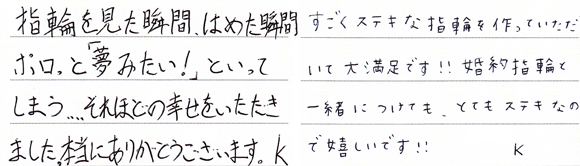 指輪を見た瞬間、はめた瞬間
ポロっと「夢みたい!」といって
しまう...それほどの幸せをいただき
ました。本当にありがとうございます。K
すごくステキな指輪を作っていただ
いて大満足です!!婚約指輪と
一緒につけても、とてもステキなの
で嬉しいです!!  K